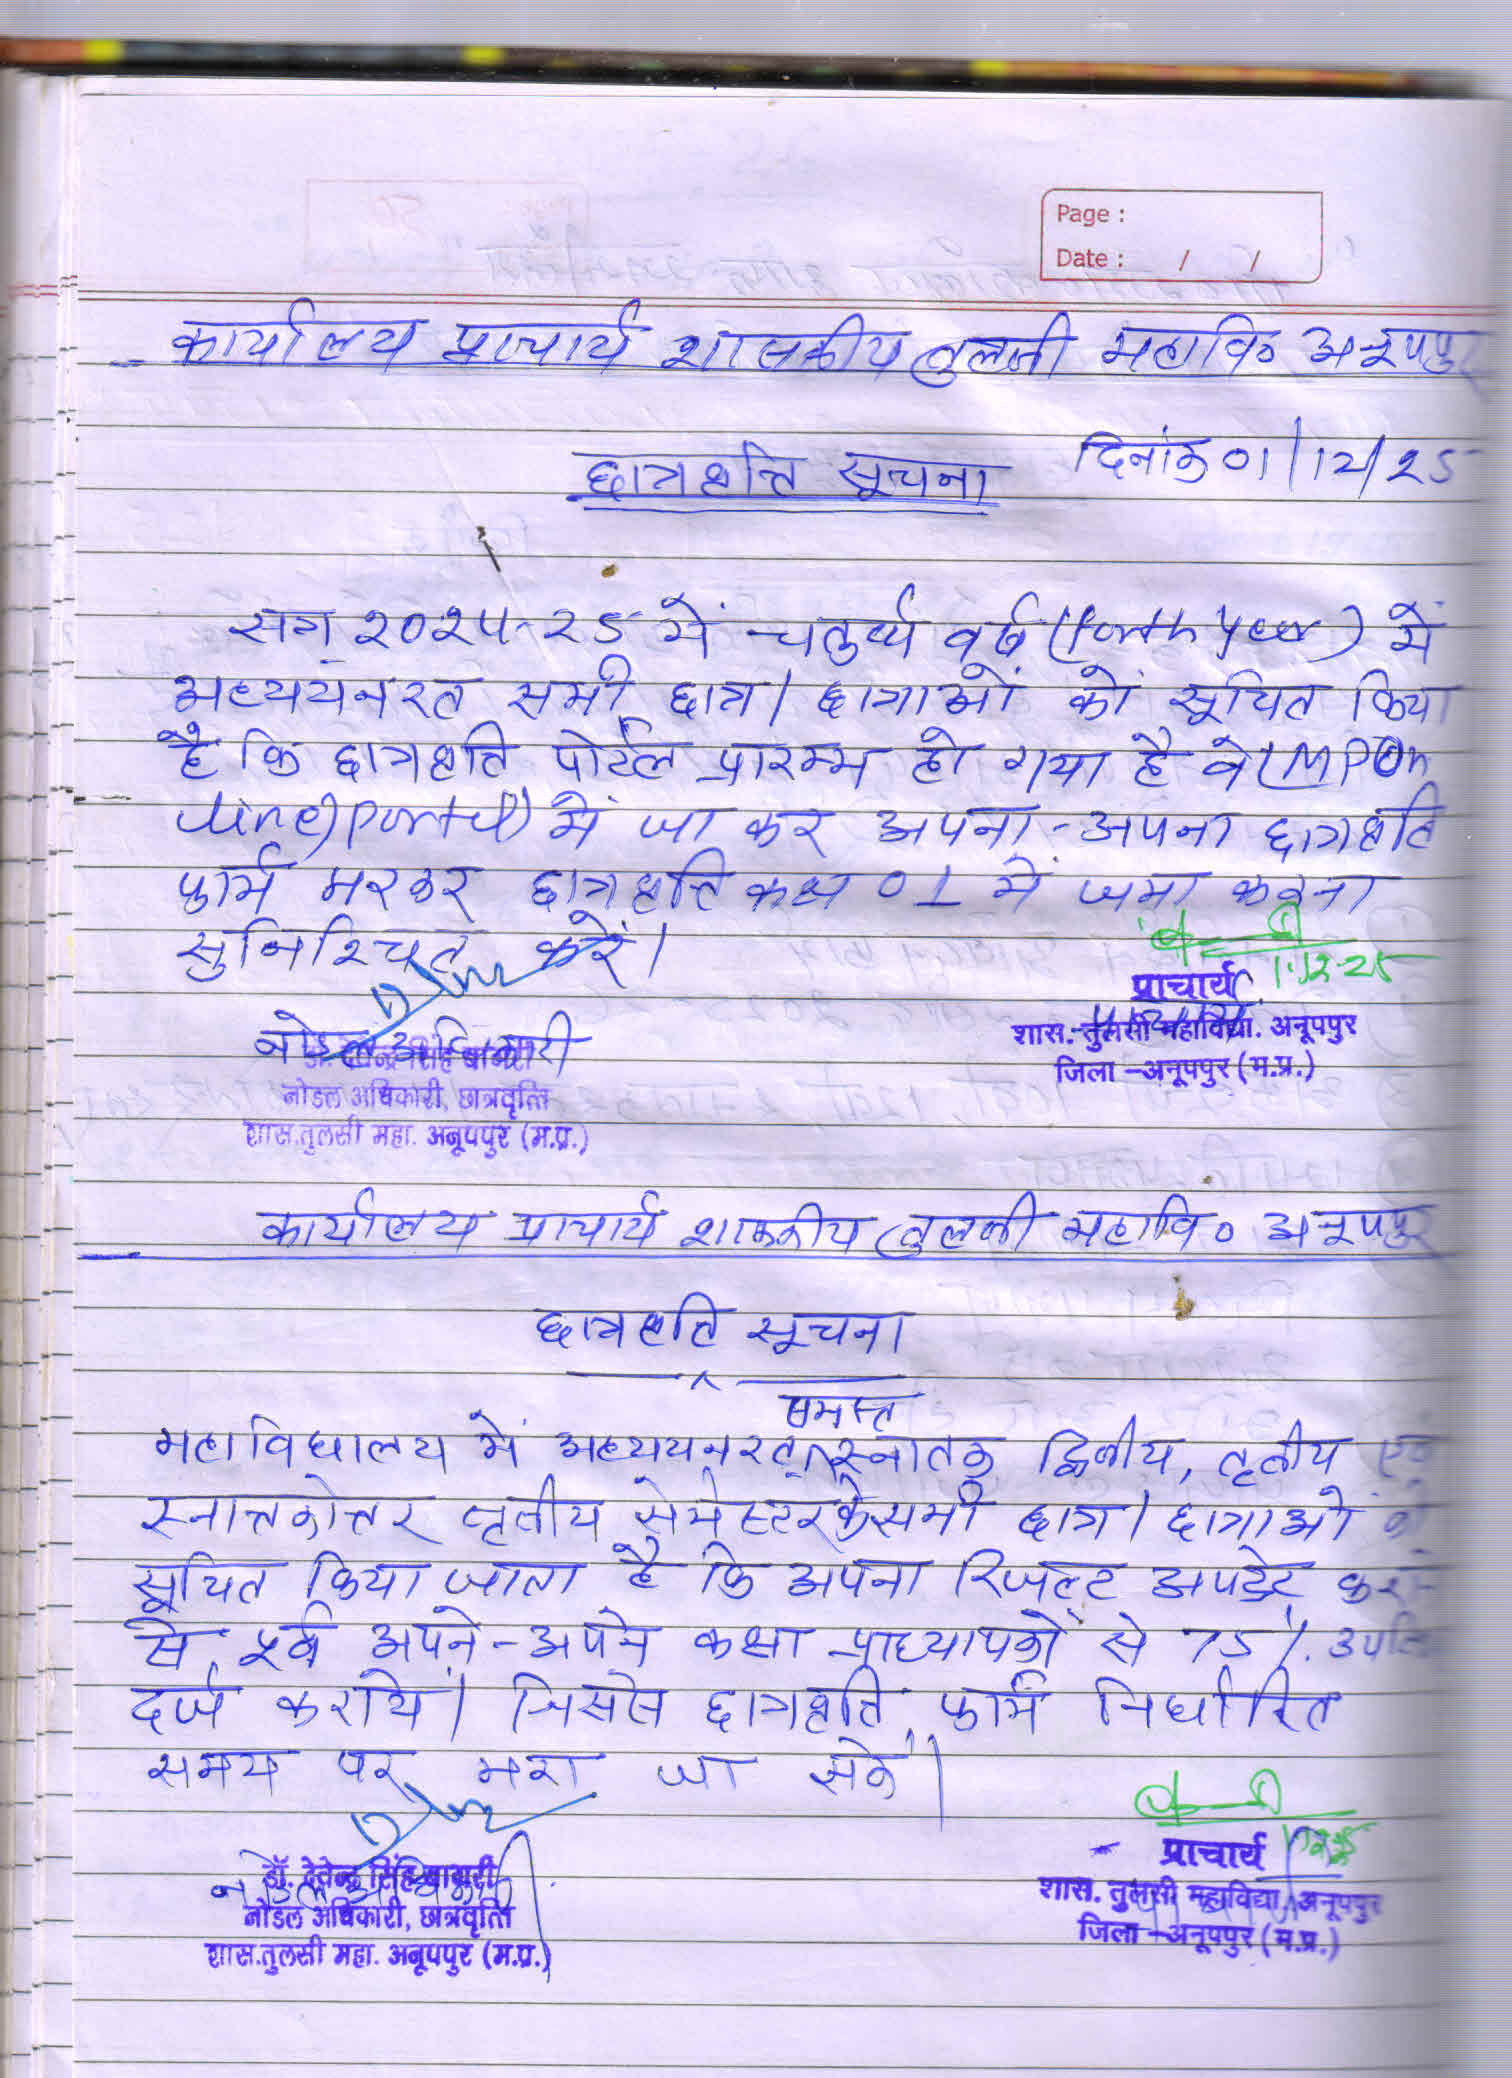 Page :
Date : / /
कार्यालय प्राचार्य शासकीय तुलसी महावि० अनूपपुर
दिनांक 01/12/25
छात्रवृत्ति सूचना
सत्र 2024-25 में चतुर्थ वर्ष (forth year) में
अध्ययनरत सभी छात्र/छात्राओं को सूचित किया
है कि छात्रवृत्ति पोर्टल प्रारम्भ हो गया है वे (MPOn
line) portal) में जा कर अपना-अपना छात्रवृत्ति
फार्म भरकर छात्रवृत्ति कक्ष 01 में जमा करना
सुनिश्चित करें।
1.12.25
प्राचार्य
शास.-तुलसी महाविद्या. अनूपपुर
जिला –अनूपपुर (म.प्र.)
नोडल अधिकारी
नोडल अधिकारी, छात्रवृत्ति
शास.तुलसी महा. अनूपपुर (म.प्र.)
कार्यालय प्राचार्य शासकीय तुलसी महावि० अनूपपुर
छात्रवृत्ति सूचना
समस्त
महाविद्यालय में अध्ययनरत स्नातक द्वितीय, तृतीय एवं
स्नात्तकोत्तर तृतीय सेमेस्टर के सभी छात्र/छात्राओं को
सूचित किया जाता है कि अपना रिजल्ट अपडेट कराने
से पूर्व अपने-अपने कक्षा प्राध्यापकों से 75%. उपस्थि
दर्ज करायें। जिससे छात्रवृत्ति फार्म निर्धारित
समय पर भरा जा सके।
प्राचार्य
शास. तुलसी महाविद्या. अनूपपुर
जिला –अनूपपुर (म.प्र.)
नोडल अधिकारी
डॉ. देवेन्द्र सिंह बागरी
नोडल अधिकारी, छात्रवृत्ति
शास.तुलसी महा. अनूपपुर (म.प्र.)